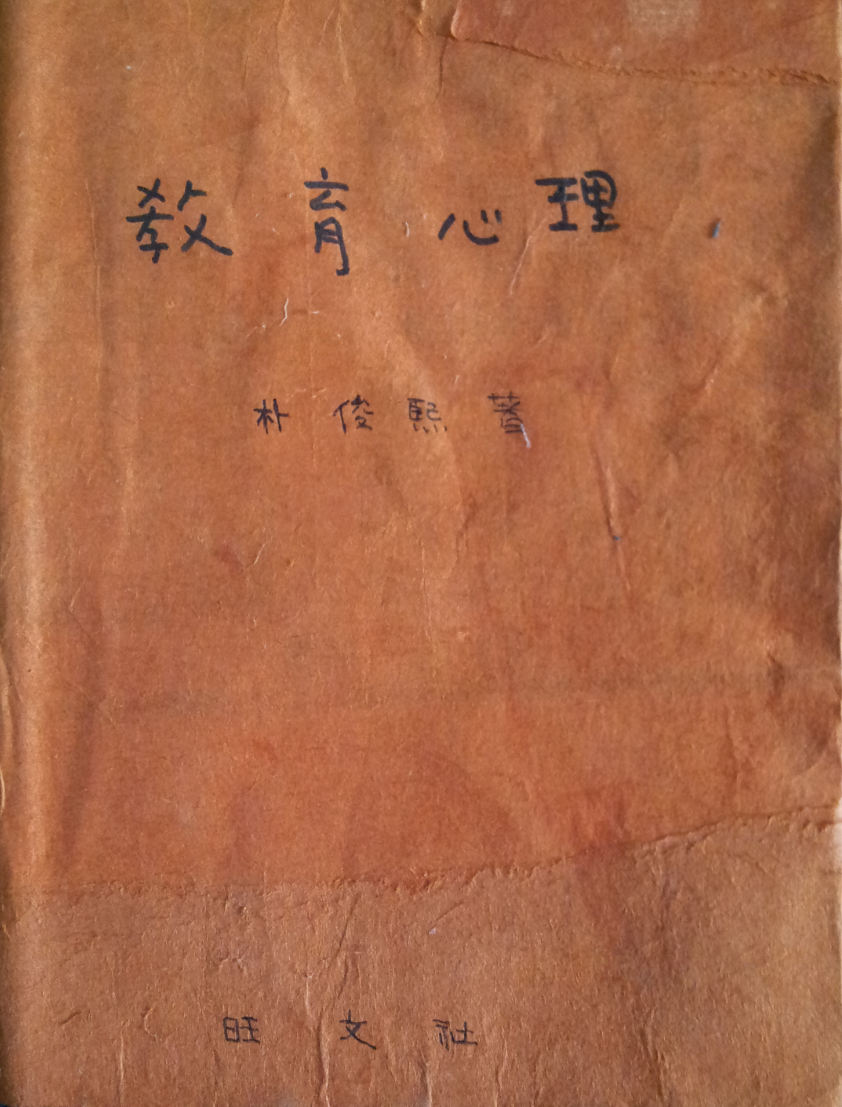 敎育心理
朴俊熙著
旺文社